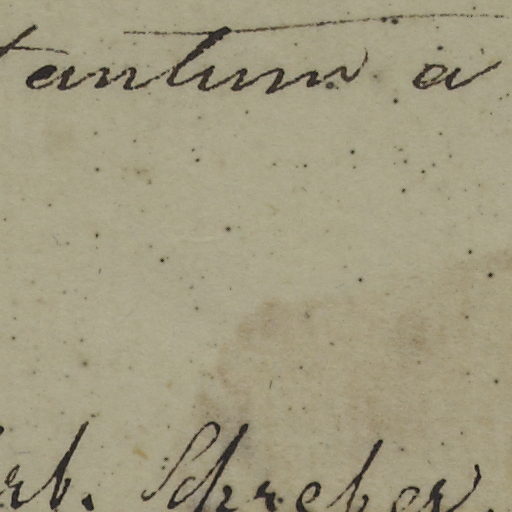 tantum a
rb. Schreber.